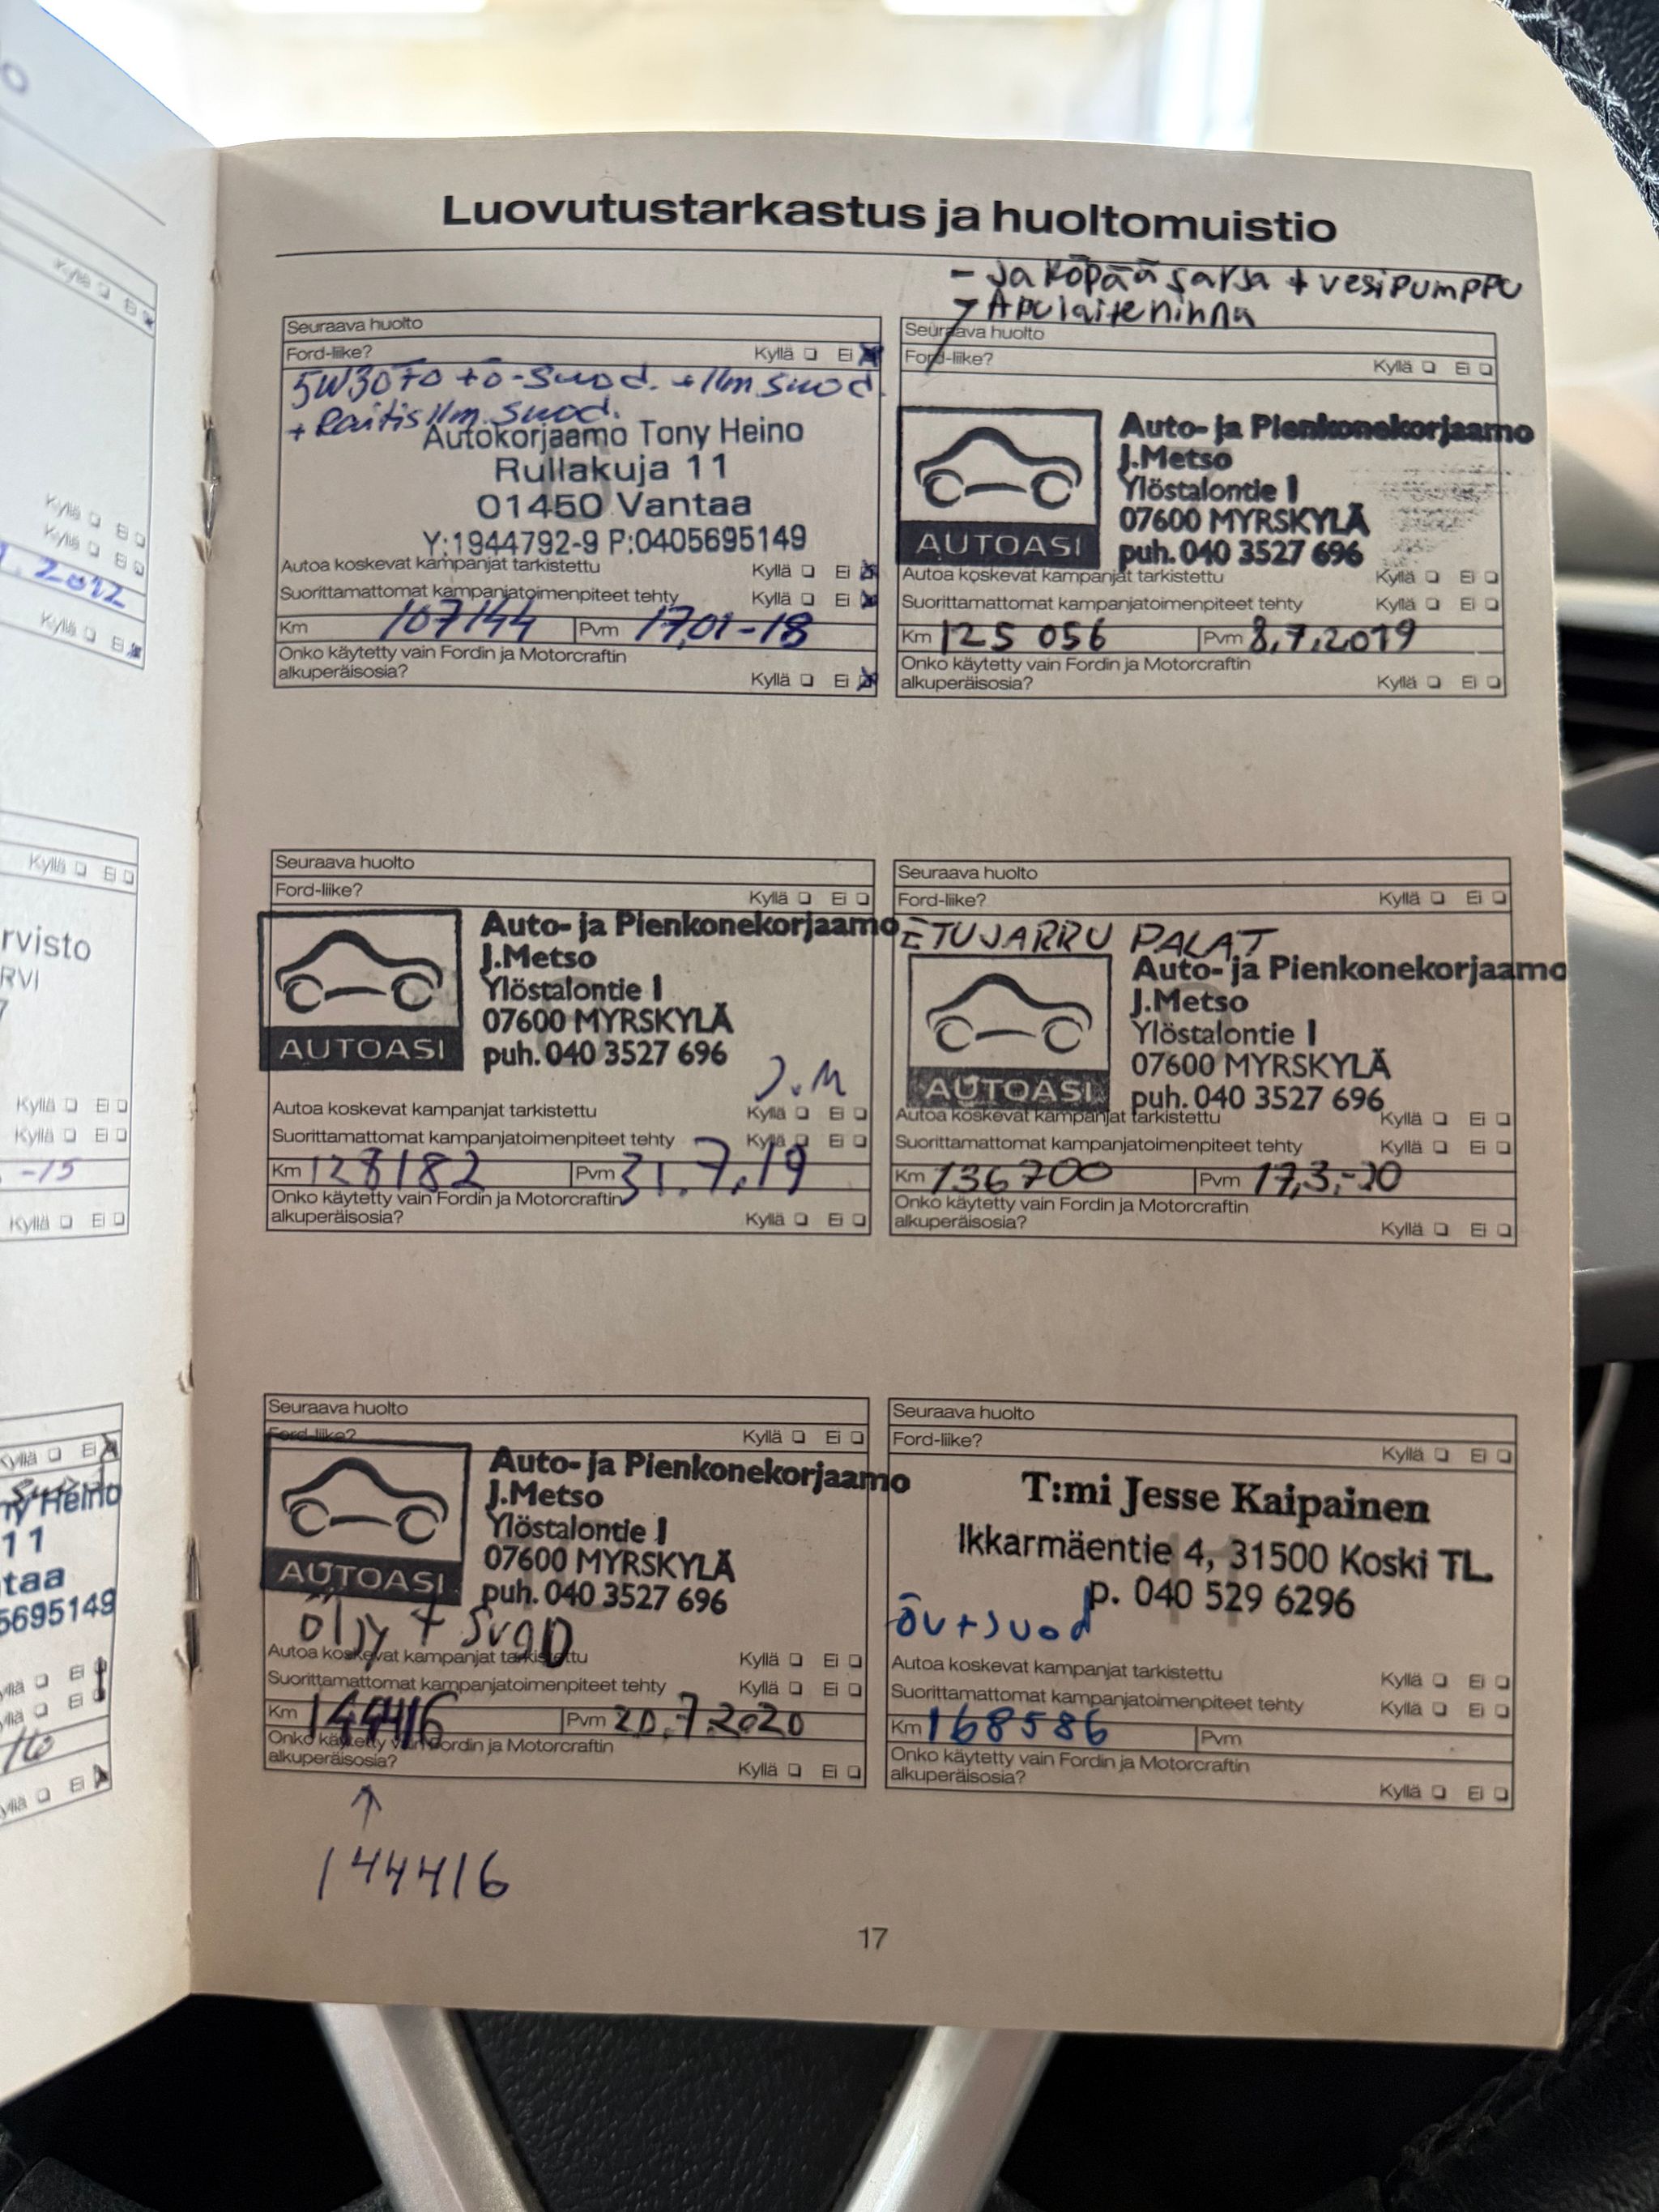 Luovutustarkastus ja huoltomuistio
- Jakopää sarja + vesipumppu
Apulaitehihna
Seuraava huolto
Ford-liike? Kyllä Ei
5W30 + ö-suod. + Ilm.suod.
+ Raitisilm.suod.
Autokorjaamo Tony Heino
Rullakuja 11
01450 Vantaa
Y:1944792-9 P:0405695149
Autoa koskevat kampanjat tarkistettu Kyllä Ei
Suorittamattomat kampanjatoimenpiteet tehty Kyllä Ei
Km 107144 Pvm 17.01-18
Onko käytetty vain Fordin ja Motorcraftin
alkuperäisosia? Kyllä Ei
Seuraava huolto
Ford-liike? Kyllä Ei
Auto- ja Pienkonekorjaamo
J.Metso
Ylöstalontie 1
07600 MYRSKYLÄ
AUTOASI puh. 040 3527 696
Autoa koskevat kampanjat tarkistettu Kyllä Ei
Suorittamattomat kampanjatoimenpiteet tehty Kyllä Ei
Km 125 056 Pvm 8.7.2019
Onko käytetty vain Fordin ja Motorcraftin
alkuperäisosia? Kyllä Ei
Seuraava huolto
Ford-liike? Kyllä Ei
Auto- ja Pienkonekorjaamo
J.Metso
Ylöstalontie 1
07600 MYRSKYLÄ
AUTOASI puh. 040 3527 696
J.M
Autoa koskevat kampanjat tarkistettu Kyllä Ei
Suorittamattomat kampanjatoimenpiteet tehty Kyllä Ei
Km 128182 Pvm 31.7.19
Onko käytetty vain Fordin ja Motorcraftin
alkuperäisosia? Kyllä Ei
Seuraava huolto
Ford-liike? Kyllä Ei
ETUJARRU PALAT
Auto- ja Pienkonekorjaamo
J.Metso
Ylöstalontie 1
07600 MYRSKYLÄ
AUTOASI puh. 040 3527 696
Autoa koskevat kampanjat tarkistettu Kyllä Ei
Suorittamattomat kampanjatoimenpiteet tehty Kyllä Ei
Km 136700 Pvm 17.3.-20
Onko käytetty vain Fordin ja Motorcraftin
alkuperäisosia? Kyllä Ei
Seuraava huolto
Ford-liike? Kyllä Ei
Auto- ja Pienkonekorjaamo
J.Metso
Ylöstalontie 1
07600 MYRSKYLÄ
AUTOASI puh. 040 3527 696
öljy + SuoD
Autoa koskevat kampanjat tarkistettu Kyllä Ei
Suorittamattomat kampanjatoimenpiteet tehty Kyllä Ei
Km 144416 Pvm 20.7.2020
Onko käytetty vain Fordin ja Motorcraftin
alkuperäisosia? Kyllä Ei
144416
Seuraava huolto
Ford-liike? Kyllä Ei
T:mi Jesse Kaipainen
Ikkarmäentie 4, 31500 Koski TL.
p. 040 529 6296
öv+suod
Autoa koskevat kampanjat tarkistettu Kyllä Ei
Suorittamattomat kampanjatoimenpiteet tehty Kyllä Ei
Km 168586 Pvm
Onko käytetty vain Fordin ja Motorcraftin
alkuperäisosia? Kyllä Ei
17